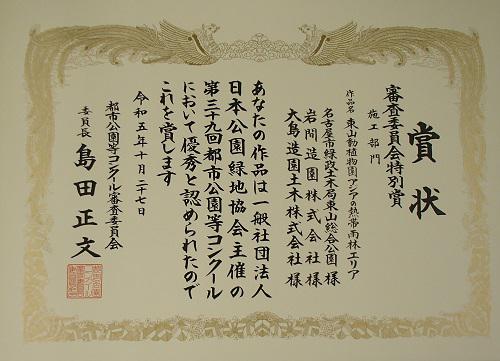 賞状
審査委員会特別賞
施工部門
作品名 東山動植物園アジアの熱帯雨林エリア
名古屋市緑政土木局東山総合公園 様
岩間造園株式会社 様
大島造園土木株式会社 様
あなたの作品は一般社団法人
日本公園緑地協会主催の
第三十九回都市公園等コンクール
において優秀と認められたので
これを賞します
令和五年十月二十七日
都市公園等コンクール審査委員会
委員長 島田正文